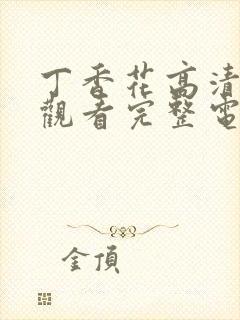 丁香花高清
觀看完整電
金頂